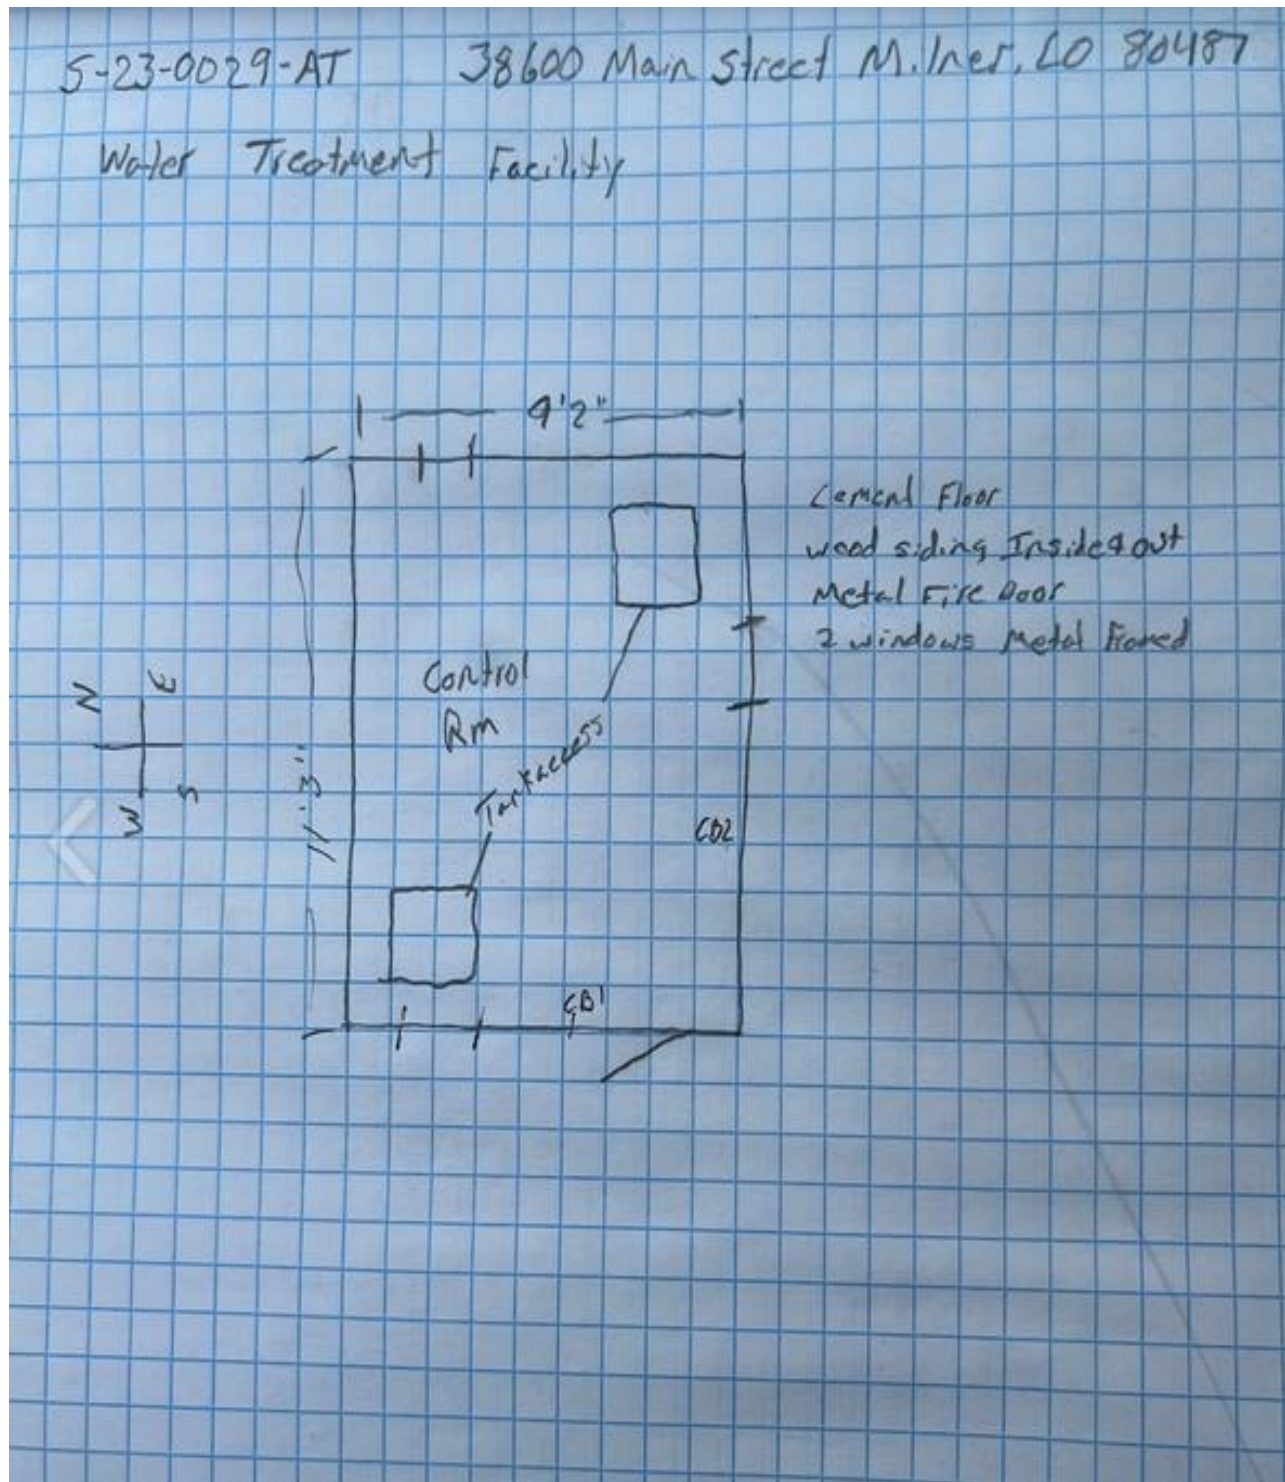 S-23-0029-AT 38600 Main Street Milner, CO 80487
Water Treatment Facility
9'2"
Cement Floor
wood siding Inside & out
Metal Fire Door
2 windows Metal Framed
N E
W S
Control
Rm
Tank access
11'3"
CB2
CB1